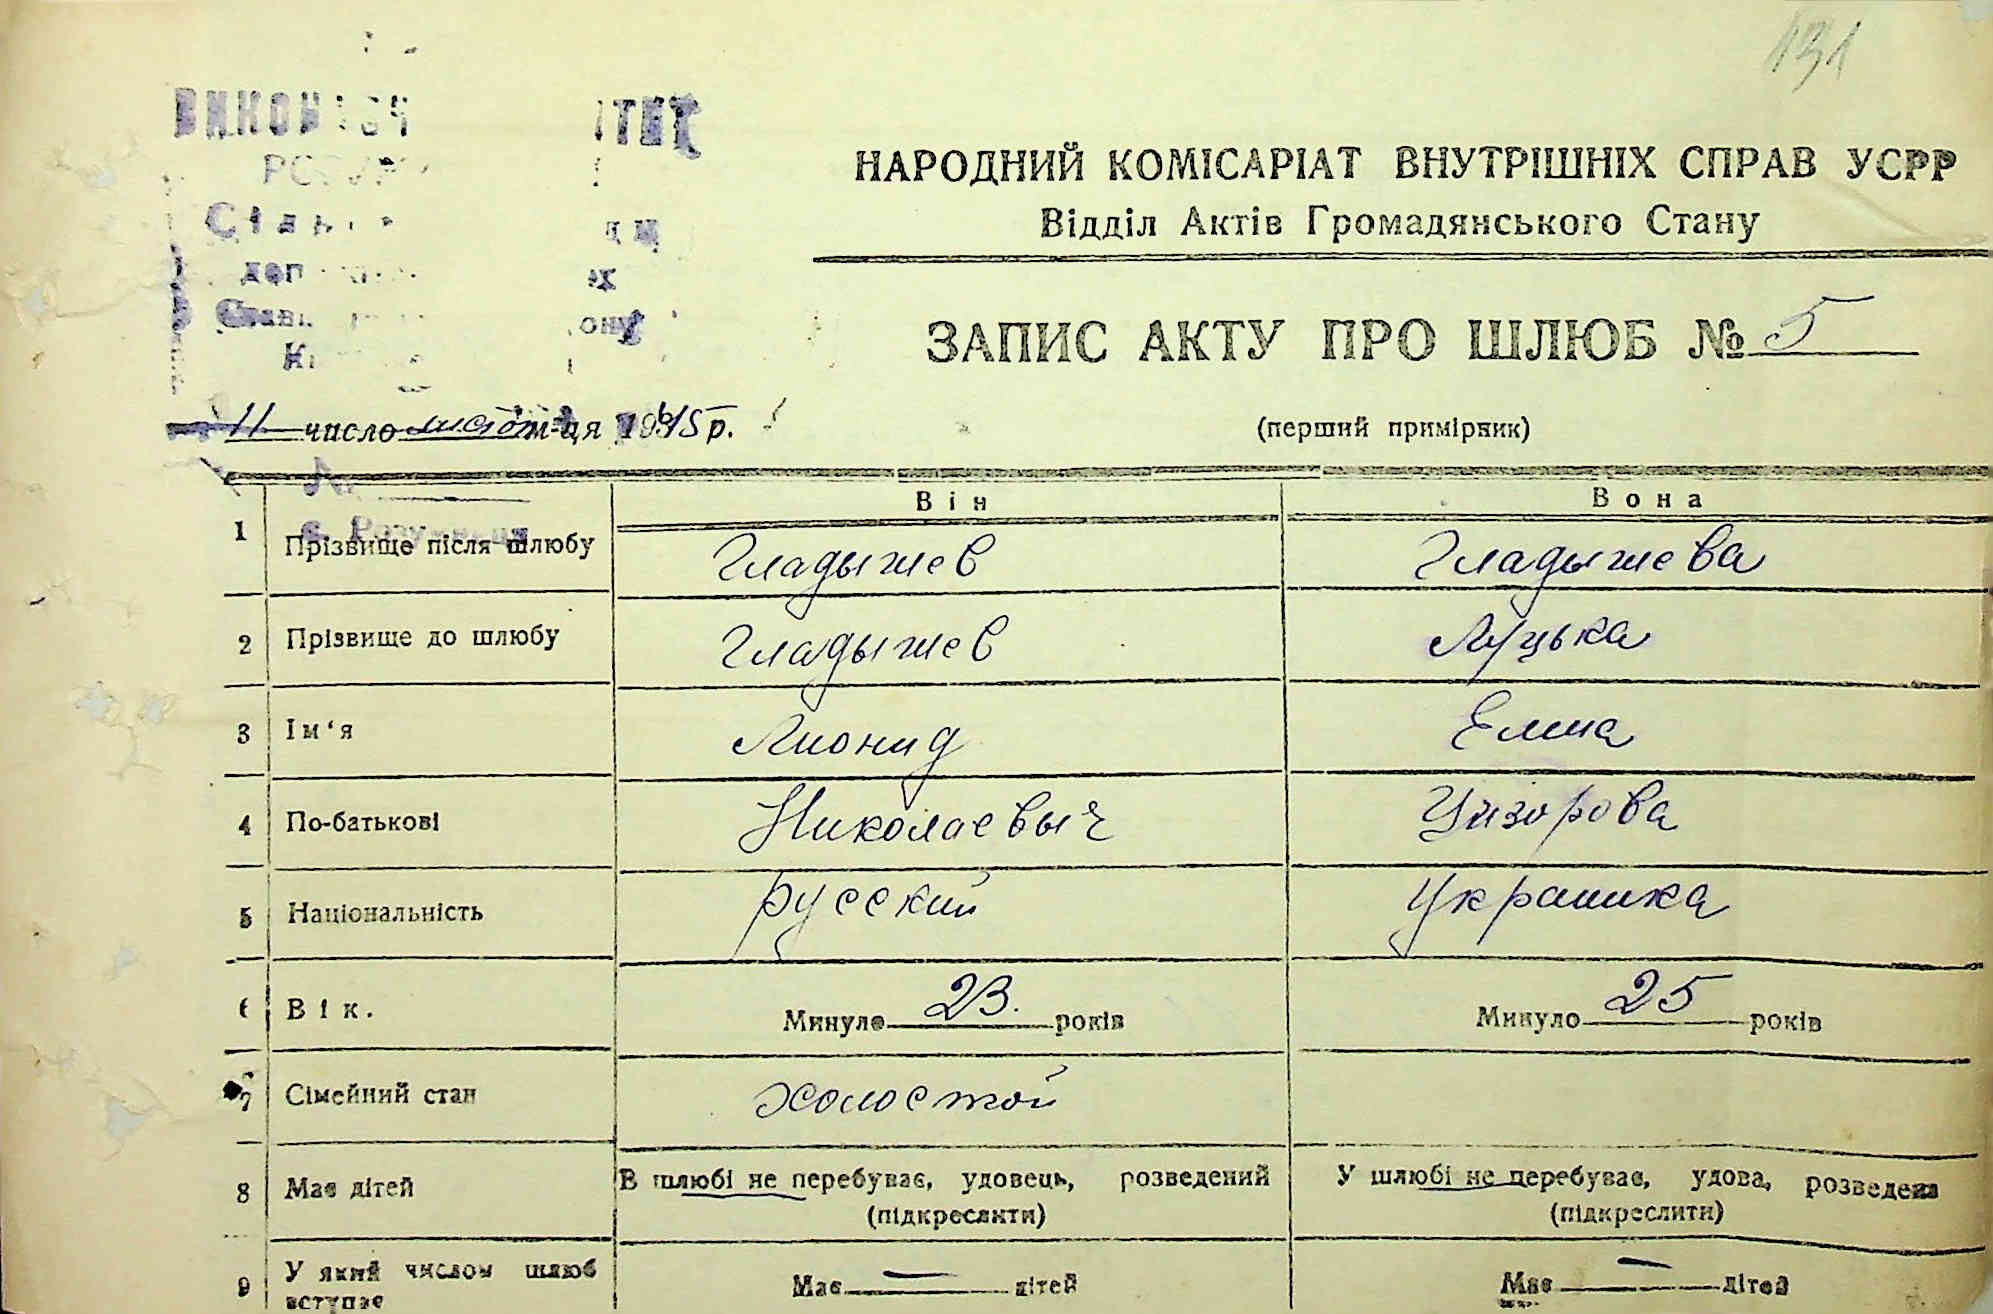 131
НАРОДНИЙ КОМІСАРІАТ ВНУТРІШНІХ СПРАВ УСРР
Відділ Актів Громадянського Стану
ЗАПИС АКТУ ПРО ШЛЮБ № 5
11 число листоп м-ця 1945 р.
(перший примірник)
Він
Вона
1 Прізвище після шлюбу Гладышев Гладышева
2 Прізвище до шлюбу Гладышев Луцька
3 Ім‘я Лионид Елина
4 По-батькові Николаевыч
5 Національність русский Украинка
6 Вік. Минуло 23. років Минуло 25 років
7 Сімейний стан холостой
8 Має дітей В шлюбі не перебуває, удовець, розведений У шлюбі не перебуває, удова, розведена
(підкреслити) (підкреслити)
9 У який числом шлюб вступає Має — дітей Має — дітей